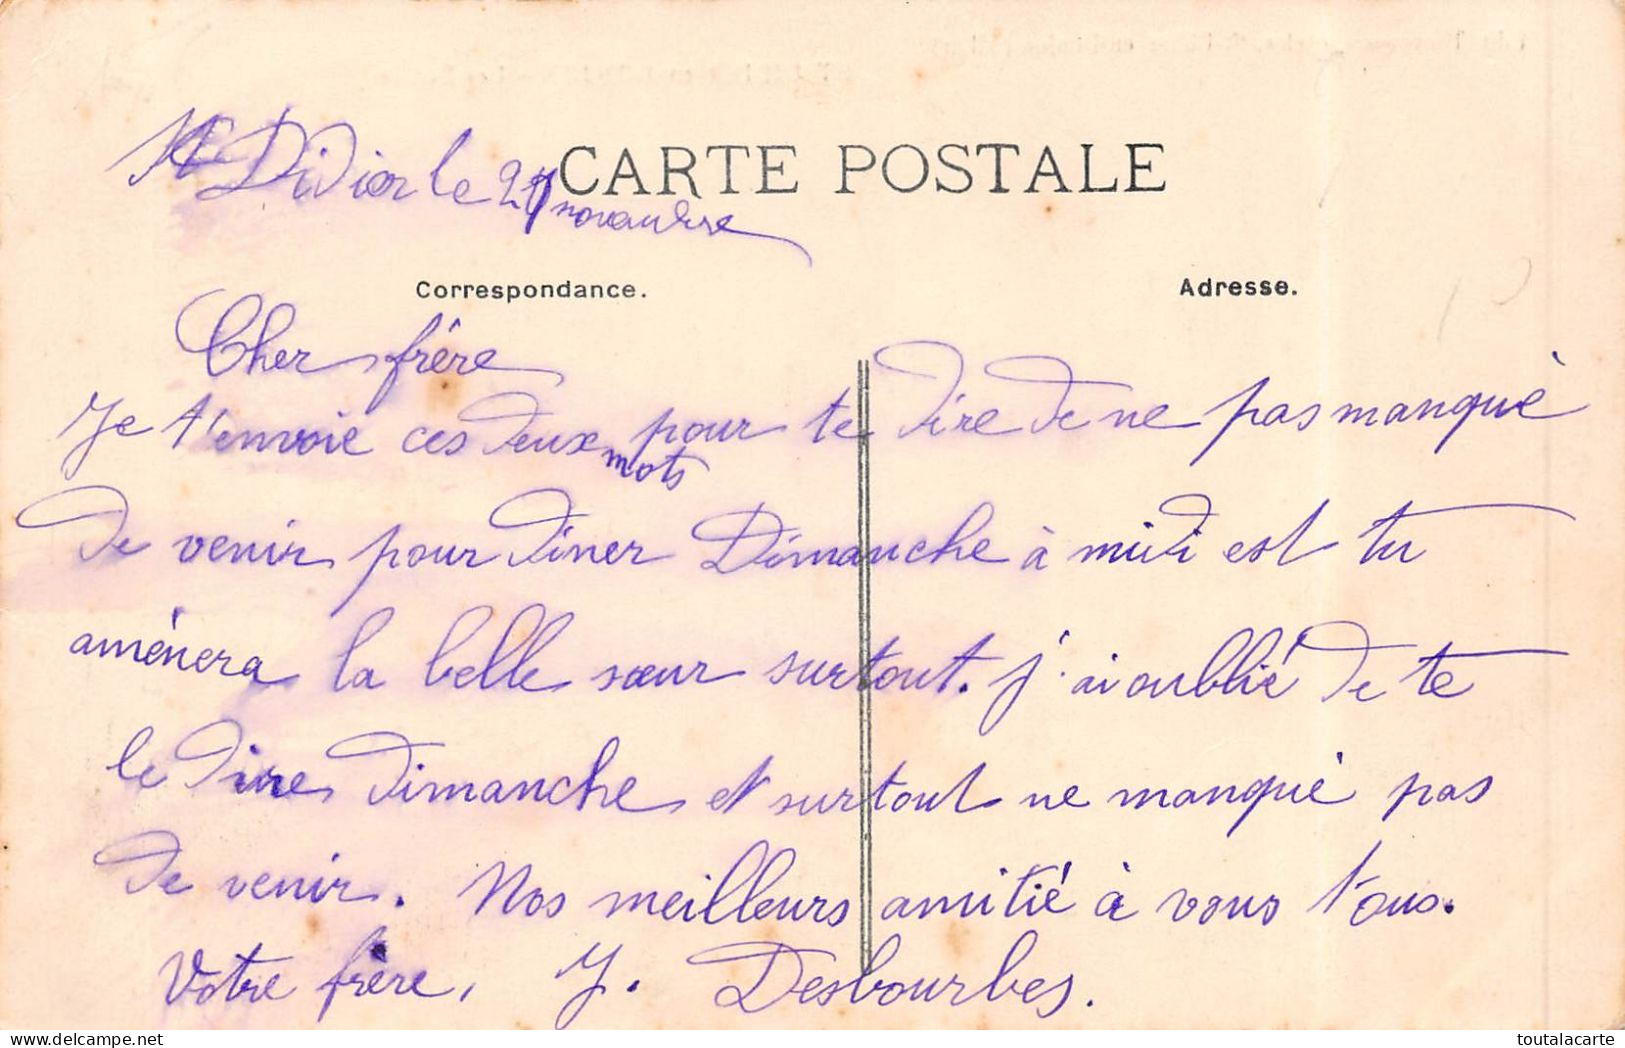 CARTE POSTALE
St Didier le 27 novembre
Correspondance.
Adresse.
Cher frère
Je t'envoie ces deux mots pour te dire de ne pas manqué
de venir pour diner Dimanche à midi est tu
amènera la belle sœur surtout. j'ai oublié de te
le dire dimanche et surtout ne manqué pas
de venir. Nos meilleurs amitié à vous tous.
Votre frère, J. Desbourbes.
toutalacarte